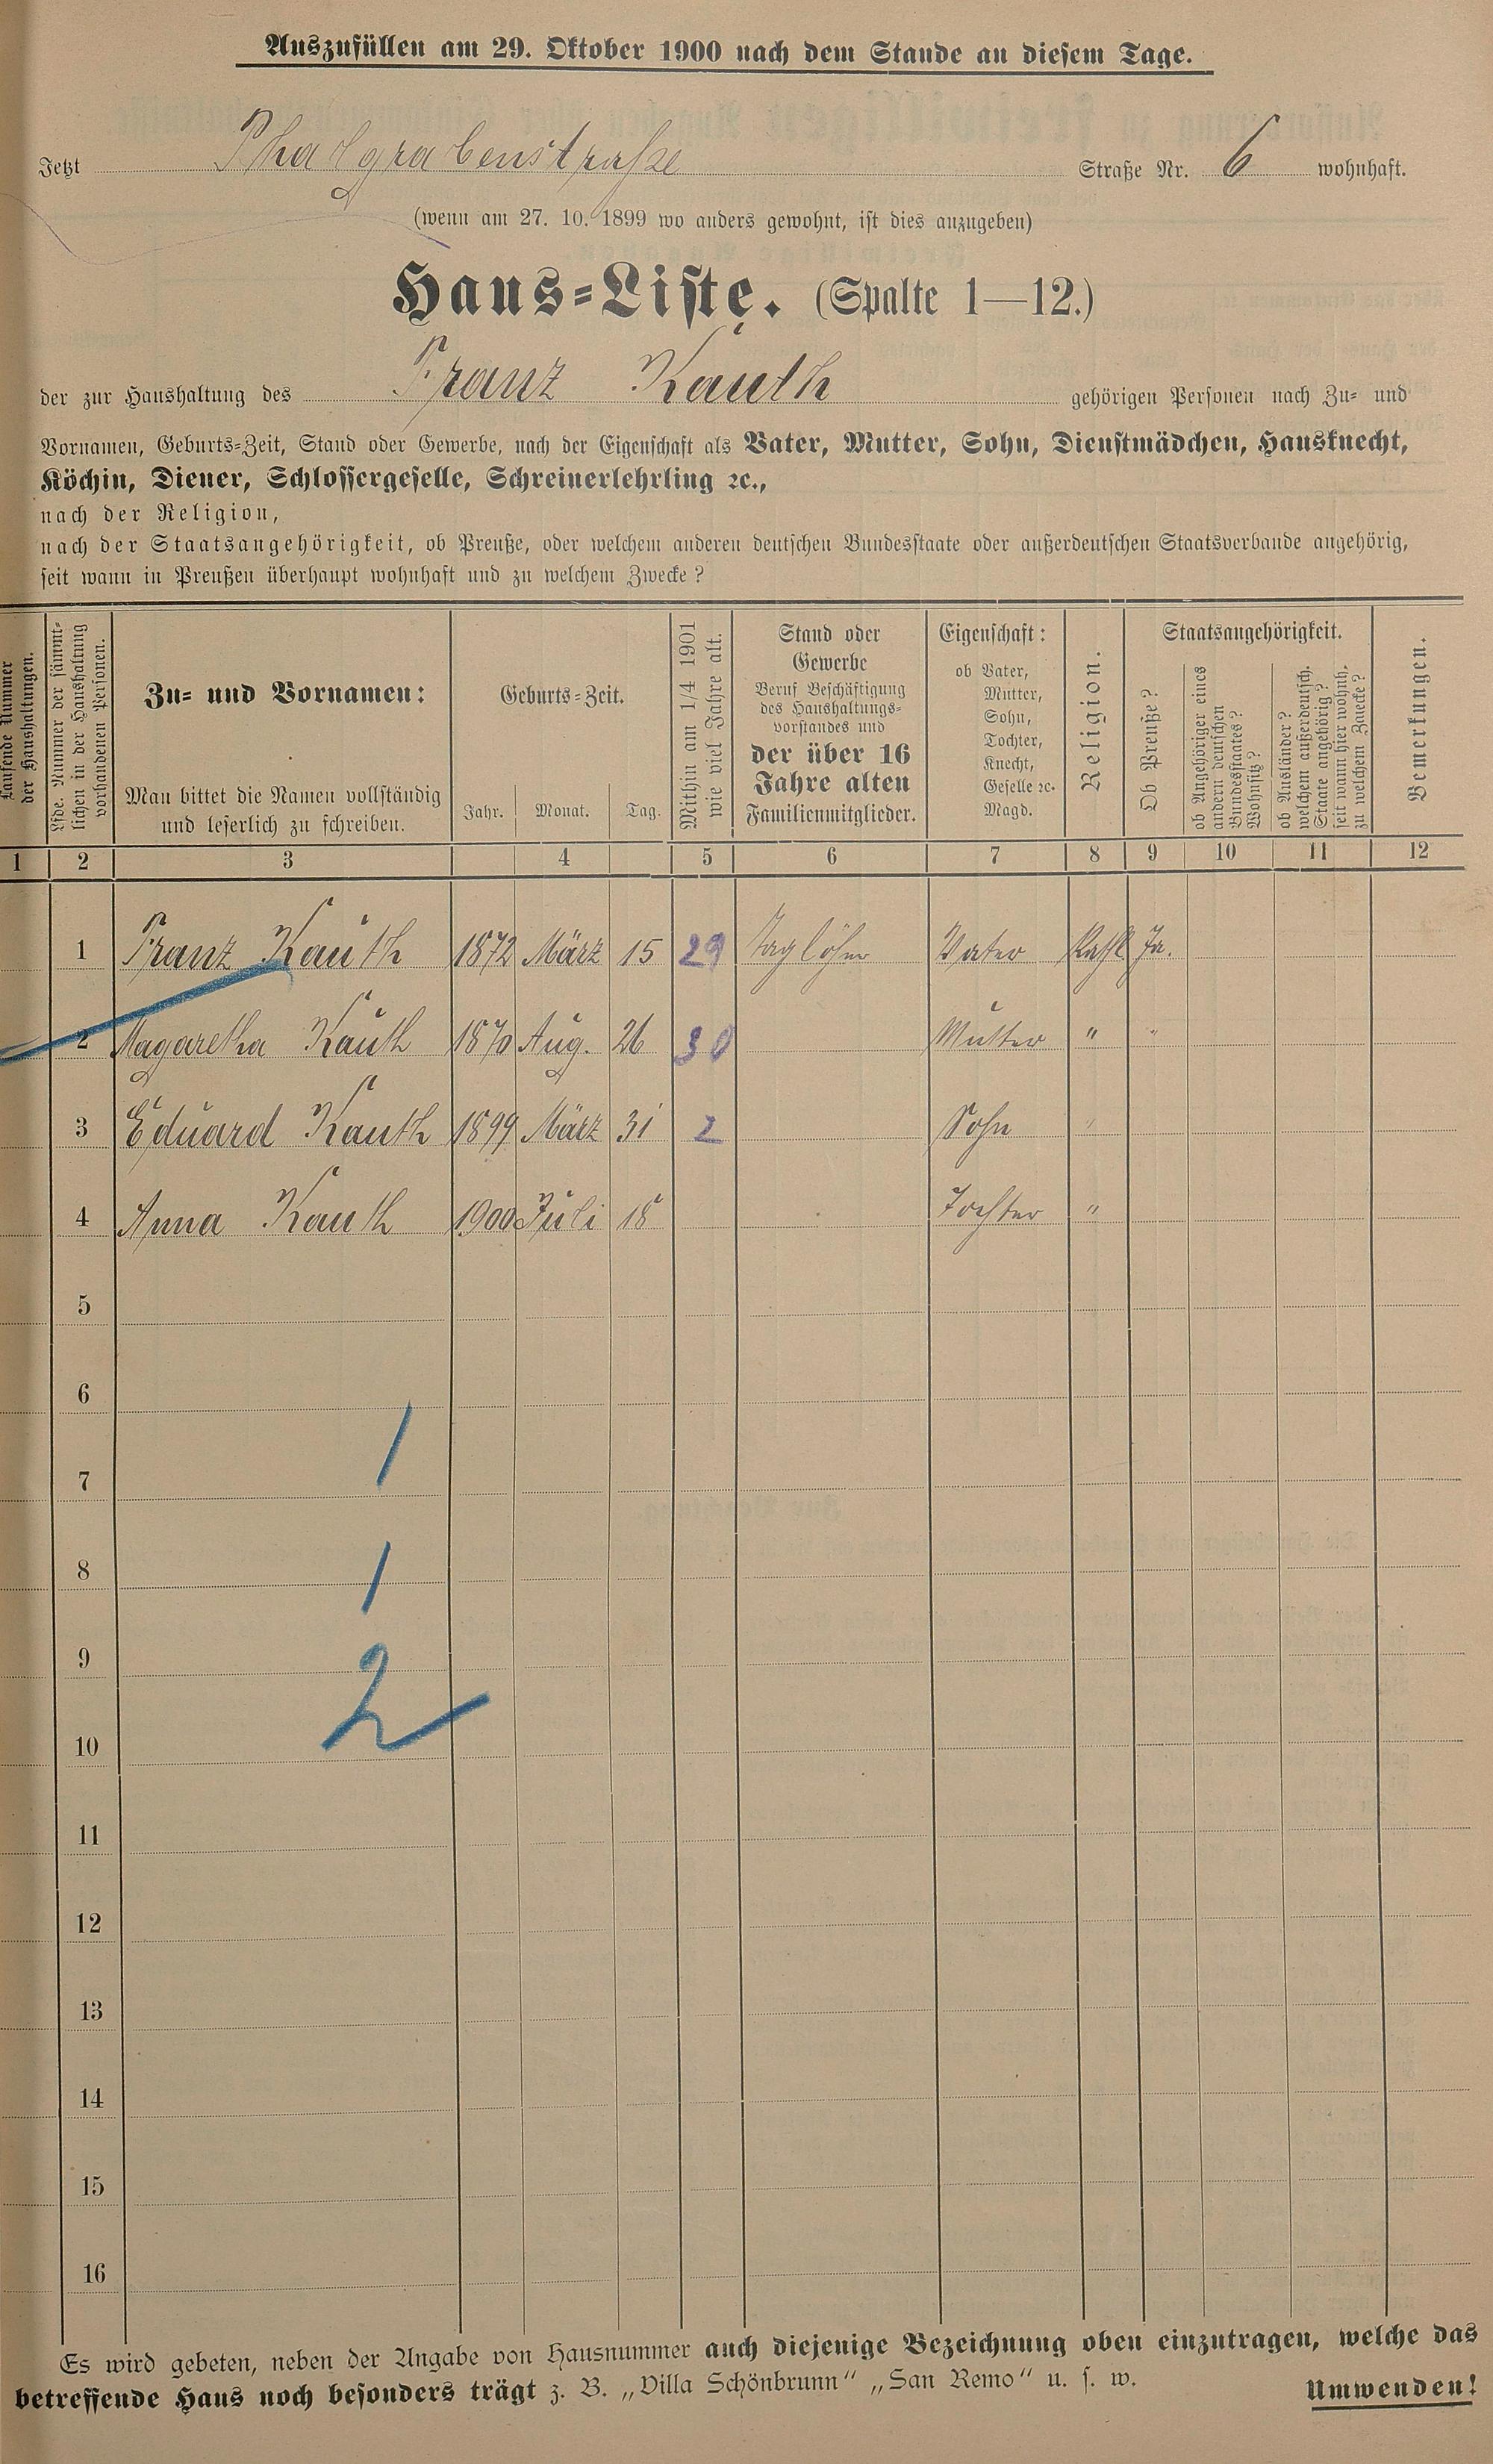 Auszufüllen am 29. Oktober 1900 nach dem Stande an diesem Tage.
Jetzt Phalgrabenstraße Straße Nr. 6 wohnhaft.
(wenn am 27. 10. 1899 wo anders gewohnt, ist dies anzugeben)
Haus=Liste. (Spalte 1—12.)
der zur Haushaltung des Franz Kauth gehörigen Personen nach Zu= und
Vornamen, Geburts=Zeit, Stand oder Gewerbe, nach der Eigenschaft als Vater, Mutter, Sohn, Dienstmädchen, Hausknecht,
Köchin, Diener, Schlossergeselle, Schreinerlehrling ꝛc.,
nach der Religion,
nach der Staatsangehörigkeit, ob Preuße, oder welchem anderen deutschen Bundesstaate oder außerdeutschen Staatsverbande angehörig,
seit wann in Preußen überhaupt wohnhaft und zu welchem Zwecke?
Laufende Nummer
der Haushaltungen.
Lfde. Nummer der sämmt=
lichen in der Haushaltung
vorhandenen Personen.
Zu= und Vornamen:
Man bittet die Namen vollständig
und leserlich zu schreiben.
Geburts=Zeit.
Jahr. Monat. Tag.
Mithin am 1/4 1901
wie viel Jahre alt.
Stand oder
Gewerbe
Beruf Beschäftigung
des Haushaltungs=
vorstandes und
der über 16
Jahre alten
Familienmitglieder.
Eigenschaft:
ob Vater,
Mutter,
Sohn,
Tochter,
Knecht,
Geselle ꝛc.
Magd.
Religion.
Staatsangehörigkeit.
Ob Preuße?
ob Angehöriger eines
andern deutschen
Bundesstaates?
Wohnsitz?
ob Ausländer?
welchem außerdeutsch.
Staate angehörig?
seit wann hier wohnh.
zu welchem Zwecke?
Bemerkungen.
1 2 3 4 5 6 7 8 9 10 11 12
1 Franz Kauth 1872 März 15 29 Taglöhner Vater Kath Ja.
2 Magaretha Kauth 1870 Aug. 26 30 Mutter " "
3 Eduard Kauth 1899 März 31 2 Sohn "
4 Anna Kauth 1900 Juli 18 Tochter "
5
6
7
1
8
1
9
2
10
11
12
13
14
15
16
Es wird gebeten, neben der Angabe von Hausnummer auch diejenige Bezeichnung oben einzutragen, welche das
betreffende Haus noch besonders trägt z. B. „Villa Schönbrunn" „San Remo" u. s. w.
Umwenden!